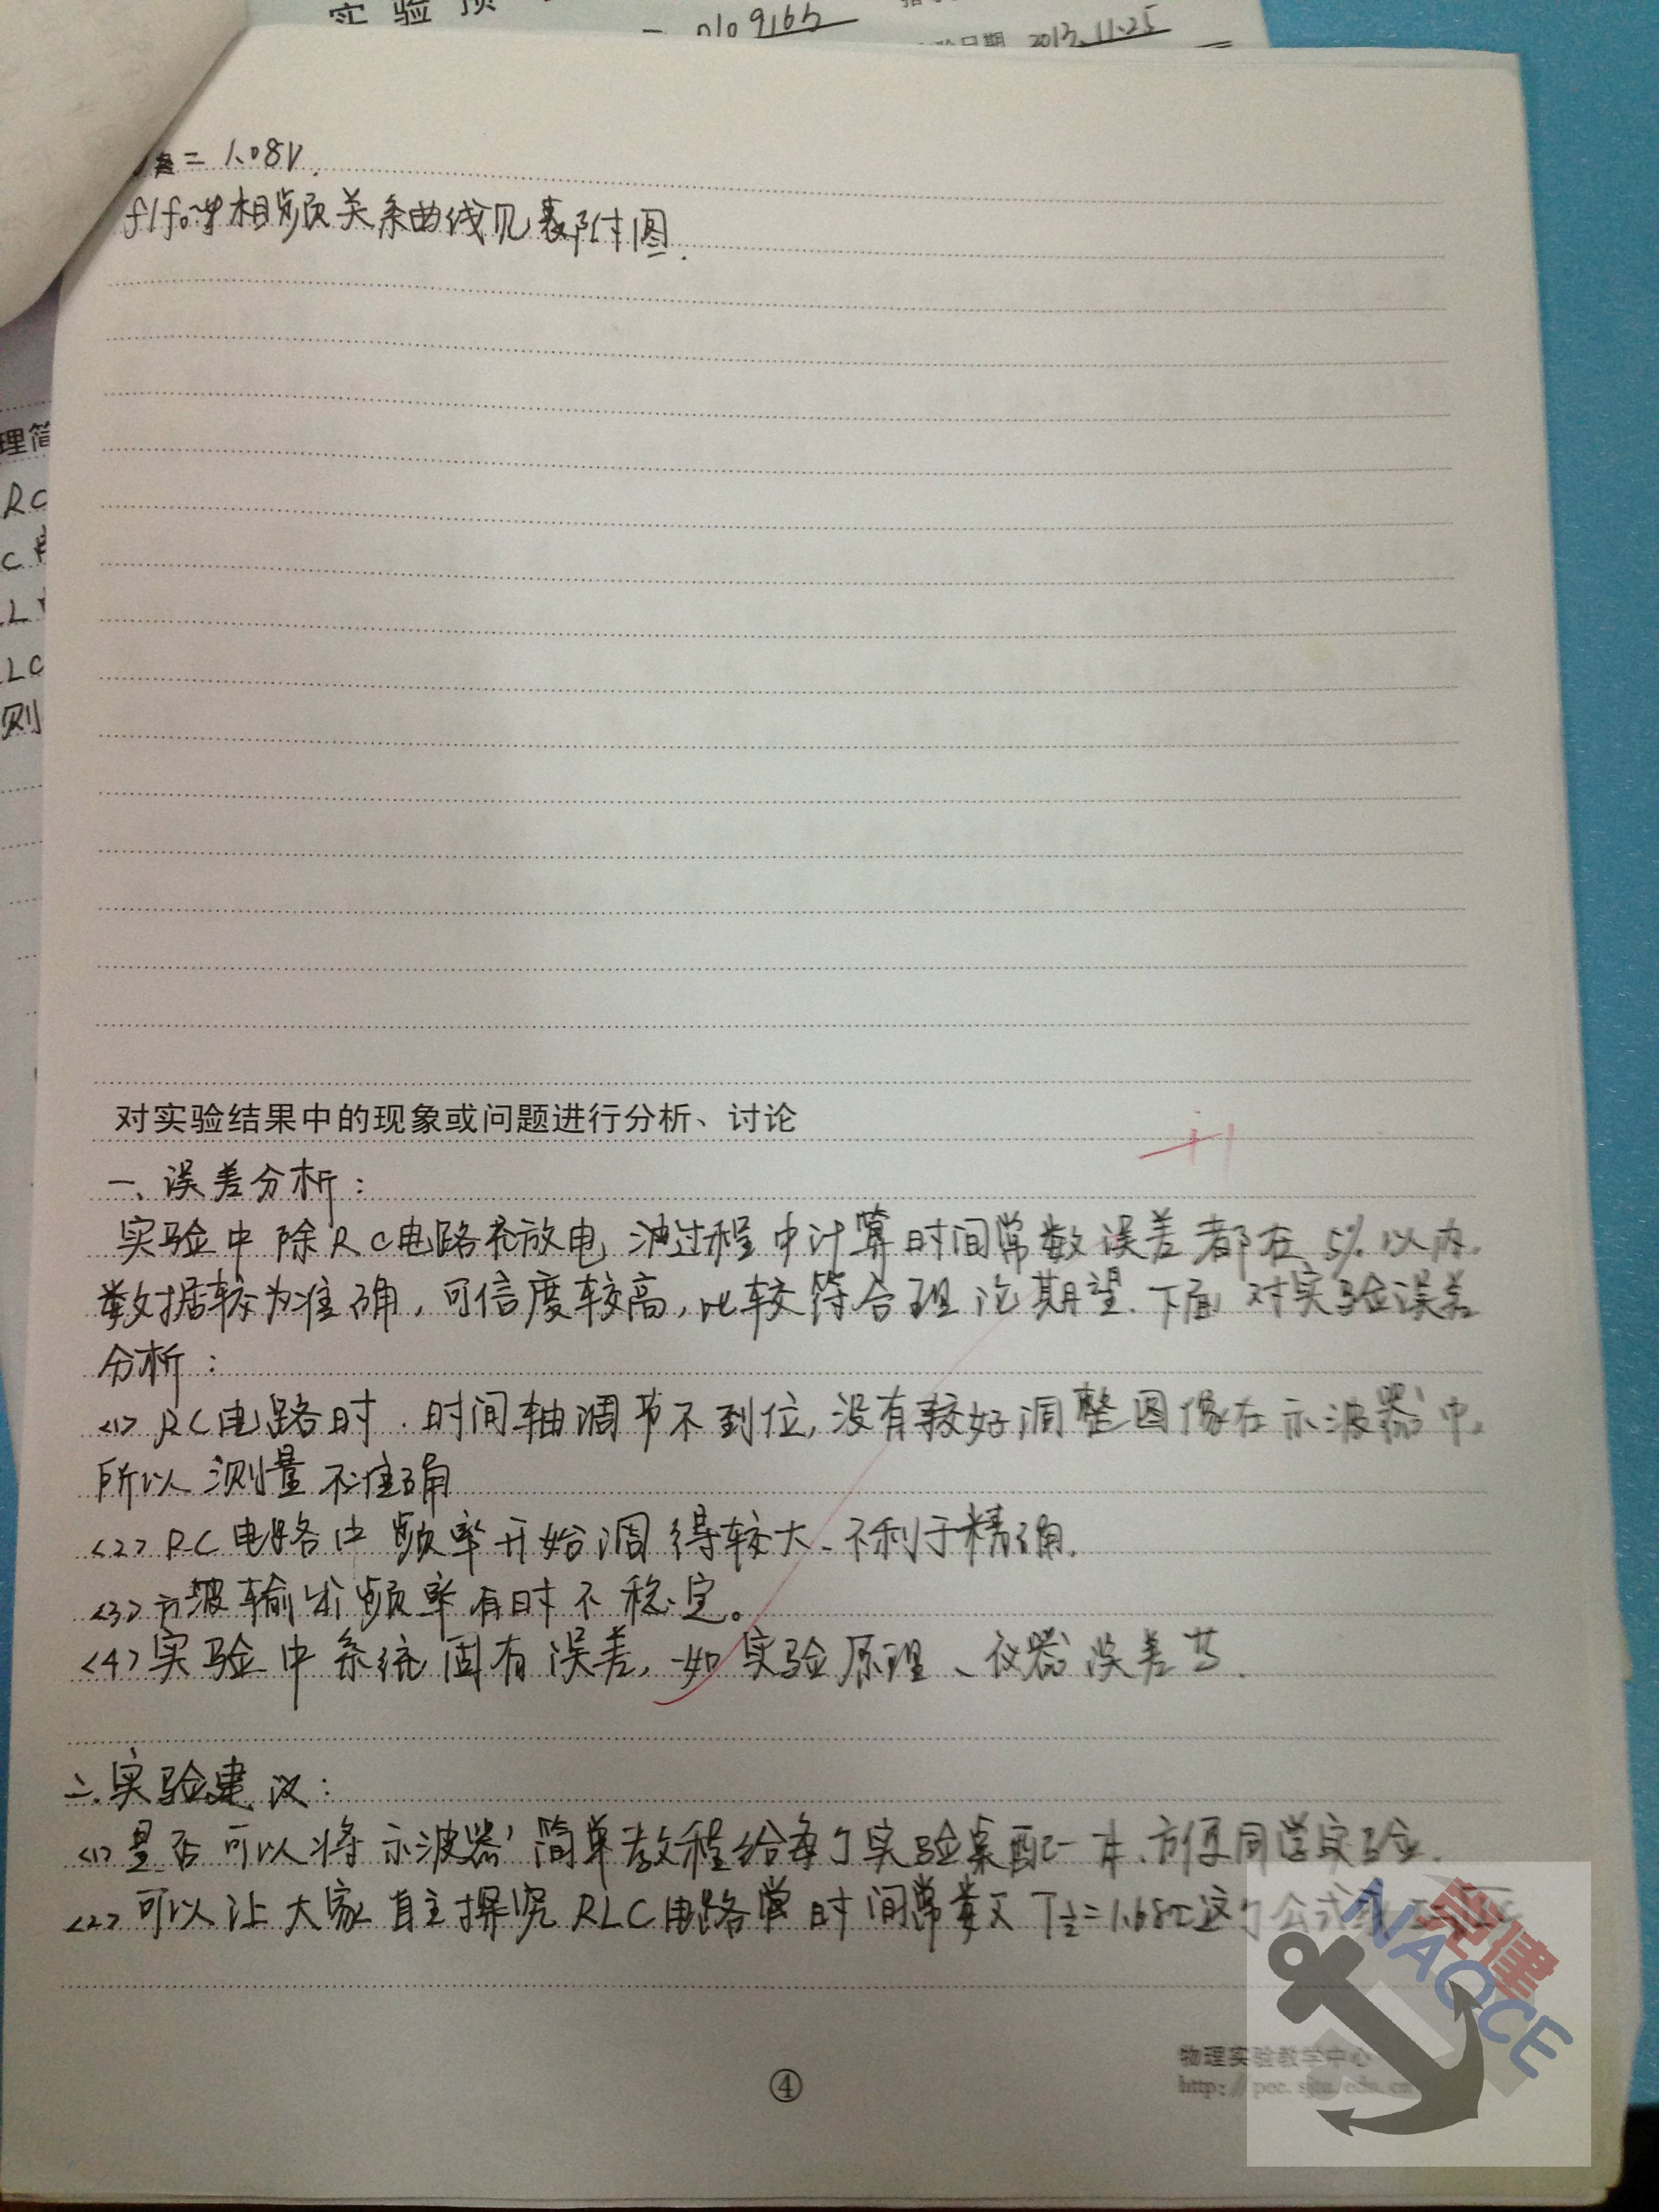 实 验 预
0109165
验日期 2013.11.25
= 1.08V.
f/f₀~φ相频关系曲线见表附图.
理简
RC
C
L
LC
则
对实验结果中的现象或问题进行分析、讨论
+1
一、误差分析:
实验中除RC电路充放电 过程中计算时间常数误差都在5%以内.
数据较为准确,可信度较高,比较符合理论期望.下面对实验误差
分析:
<1> RC电路时.时间轴调节不到位,没有较好调整图像在示波器中,
所以测量不准确
<2> RC电路中频率开始调得较大、不利于精确.
<3>方波输出频率有时不稳定。
<4>实验中系统固有误差,如实验原理、仪器误差等.
二.实验建议:
<1>是否可以将示波器简单教程给每个实验桌配一本.方便同学实验.
<2>可以让大家自主探究RLC电路 时间常数 T½=1.68τ这个公式
党建
NAOCE
④
物理实验教学中心
http://pec.sjtu.edu.cn